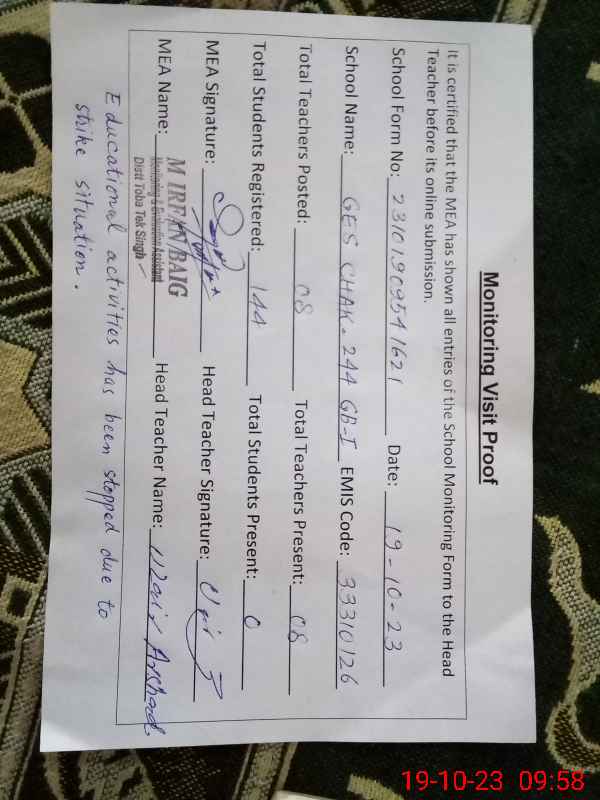 Monitoring Visit Proof
It is certified that the MEA has shown all entries of the School Monitoring Form to the Head
Teacher before its online submission.
School Form No: 23101909541621 Date: 19-10-23
School Name: GES CHAK. 244 GB-I EMIS Code: 33310126
Total Teachers Posted: 08 Total Teachers Present: 08
Total Students Registered: 144 Total Students Present: 0
MEA Signature: Head Teacher Signature:
MEA Name: M IRFAN BAIG Head Teacher Name: Arshad
Monitoring & Evaluation Assistant
Distt Toba Tek Singh
Educational activities has been stopped due to
strike situation.
19-10-23 09:58